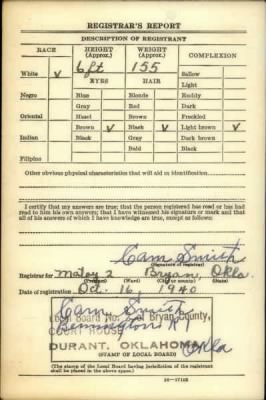 REGISTRAR'S REPORT
DESCRIPTION OF REGISTRANT
RACE HEIGHT (Approx.) WEIGHT (Approx.) COMPLEXION
White ✓ 6 ft 155 Sallow
EYES HAIR Light
Negro Blue Blonde Ruddy
Gray Red Dark
Oriental Hazel Brown Freckled
Brown ✓ Black ✓ Light brown ✓
Indian Black Gray Dark brown
Bald Black
Filipino
Other obvious physical characteristics that will aid in identification
I certify that my answers are true; that the person registered has read or has had
read to him his own answers; that I have witnessed his signature or mark and that
all of his answers of which I have knowledge are true, except as follows:
Cam Smith
(Signature of registrar)
Registrar for 2 Bryan, Okla.
(Precinct) (Ward) (City or county) (State)
Date of registration Oc. 16, 1940
Cam Smith
Local Board No. Bryan County,
Bennington Rt
COURT HOUSE
DURANT, OKLAHOMA
Okla
(STAMP OF LOCAL BOARD)
(The stamp of the Local Board having jurisdiction of the registrant
shall be placed in the above space.)